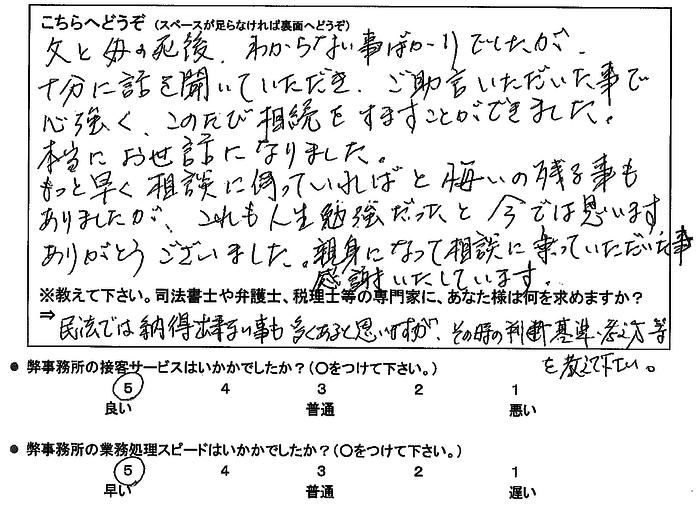 こちらへどうぞ（スペースが足らなければ裏面へどうぞ）
父と母の死後、わからない事ばかりでしたが、
十分に話を聞いていただき、ご助言いただいた事で
心強く、このたび相続をすますことができました。
本当にお世話になりました。
もっと早く相談に伺っていればと悔いの残る事も
ありましたが、これも人生勉強だったと今では思います
ありがとうございました。親身になって相談に乗っていただいた事
感謝いたしています。
※教えて下さい。司法書士や弁護士、税理士等の専門家に、あなた様は何を求めますか？
⇒
民法では納得出来ない事も多くあると思いますが、その時の判断基準、考え方等
を教えて下さい。
● 弊事務所の接客サービスはいかかでしたか？（○をつけて下さい。）
5 4 3 2 1
良い 普通 悪い
● 弊事務所の業務処理スピードはいかかでしたか？（○をつけて下さい。）
5 4 3 2 1
早い 普通 遅い